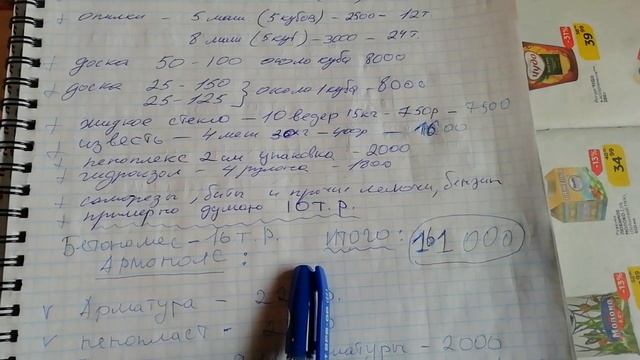 + опилки - 5 маш (5 кубов) - 2500 - 12т.
8 маш (5 куб) - 3000 - 24т.
+ доска 50 - 100 около куба 8000
+ доска 25 - 150 } около 1 куба - 8000
25 - 125
+ жидкое стекло - 10 ведер 15кг - 750р - 7500
+ известь - 4 меш 30кг - 400р - 1600
+ пеноплекс 2 см упаковка - 2000
+ гидроизол - 4 рулона - 1800
+ саморезы, биты и прочие мелочи, бензин
+ примерно думаю 10 т.р.
Бетономес - 16 т.р. ИТОГО: 161 000
Армопояс:
v Арматура -
v пенопласт -
арматуры - 2000
-31%
39
Чудо
-13%
34
-13%
Молоко